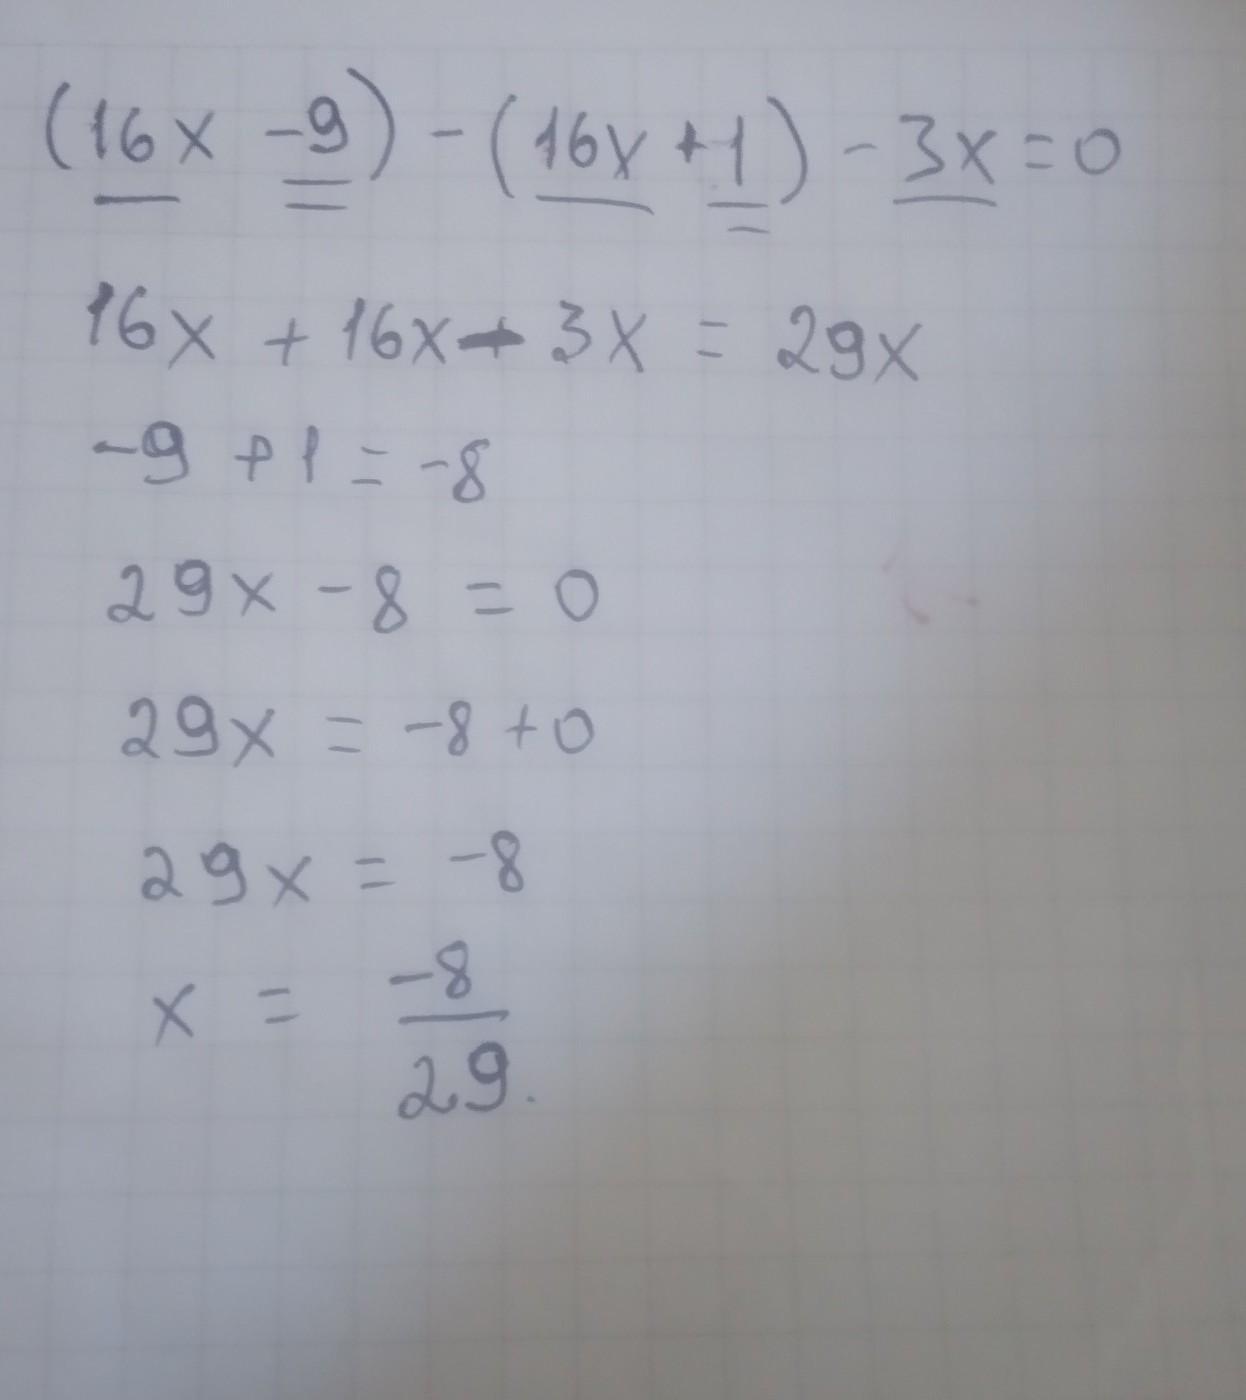 (16x -9) - (16x +1) - 3x = 0
16x + 16x - 3x = 29x
-9 + 1 = -8
29x - 8 = 0
29x = -8 + 0
29x = -8
x = \frac{-8}{29}.